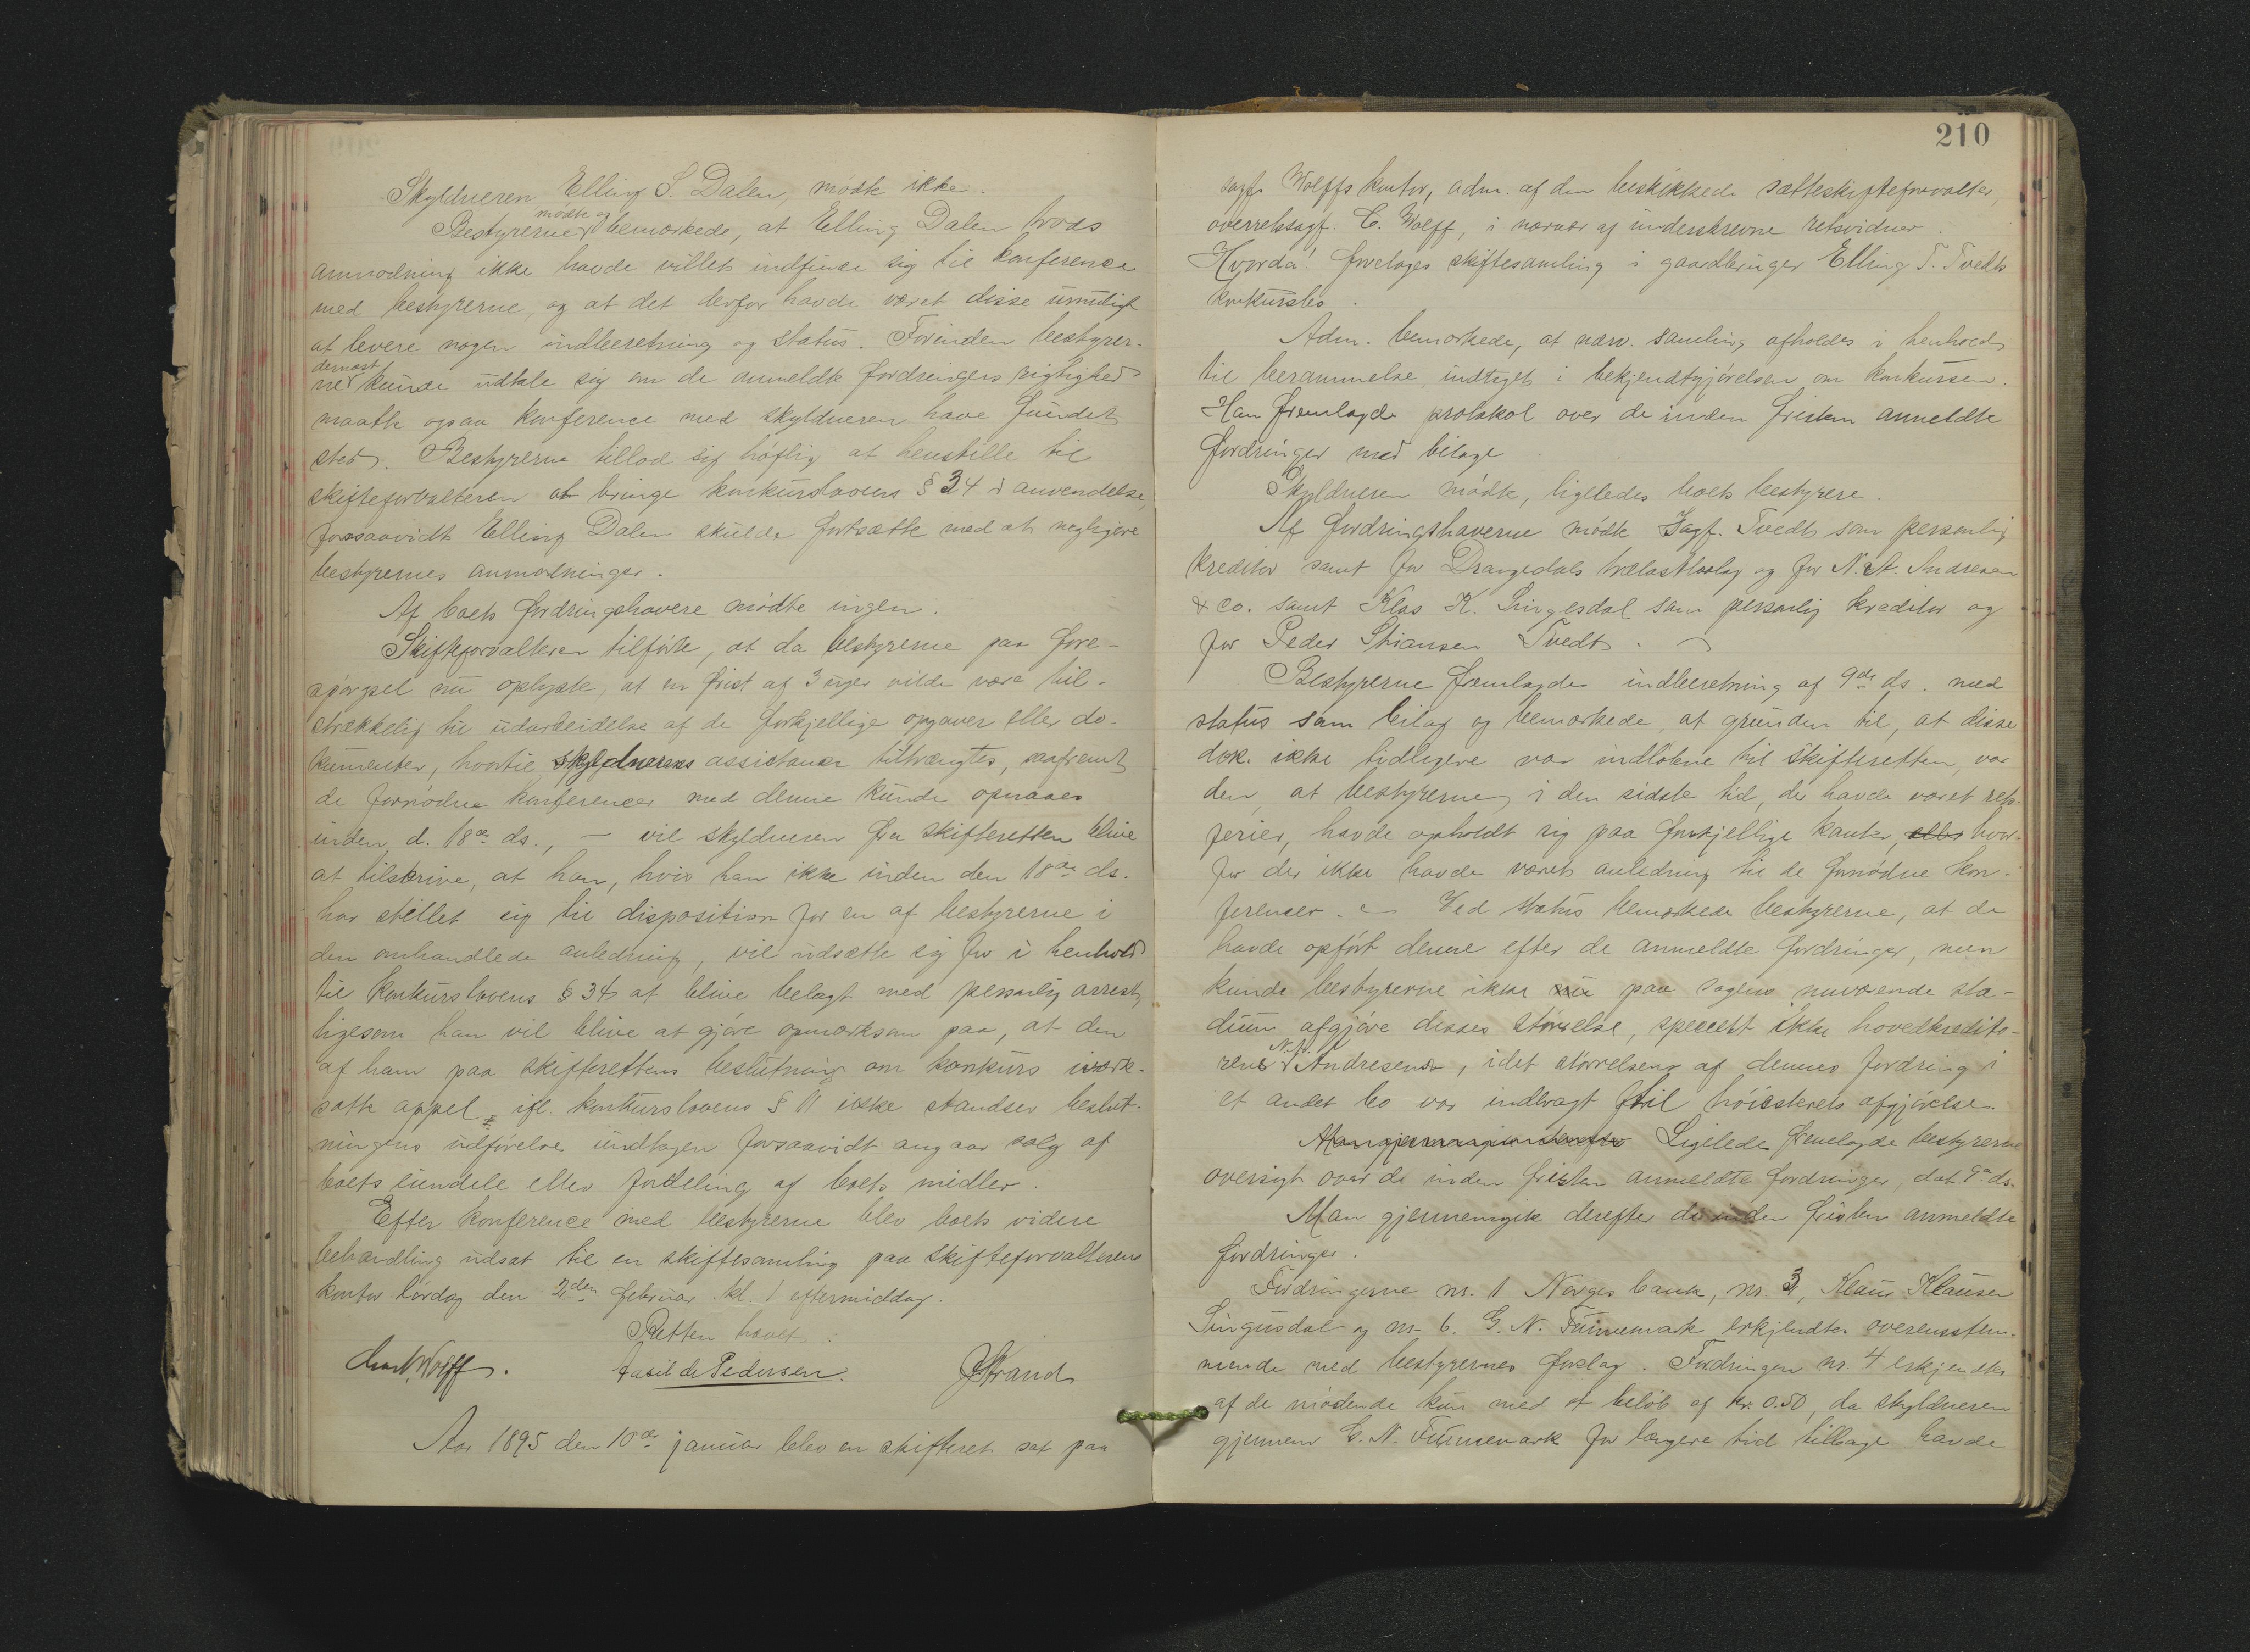 Skyldneren Elling S. Dalen, mødte ikke.
Bestyrerne mødte og bemærkede, at Elling Dalen trods
anmodning ikke havde villet indfinde sig til konference
med bestyrerne, og at det derfor havde været disse umuligt
at levere nogen indberetning og status. Forinden bestyrer-
ne dernæst kunde udtale sig om de anmeldte fordringers rigtighed
maatte ogsaa konference med skyldneren have fundet
sted. Bestyrerne tillod sig høflig at henstille til
skifteforvalteren at bringe konkurslovens § 34 i anvendelse,
forsaavidt Elling Dalen skulde fortsætte med at negligere
bestyrernes anmodninger.
Af boets fordringshavere mødte ingen.
Skifteforvalteren tilførte, at da bestyrerne paa fore-
spørgsel nu oplyste, at en frist af 3 uger vilde være til-
strækkelig til udarbeidelse af de forskjellige opgaver eller do-
kumenter, hvortil skyldnerens assistance tiltrængtes, saafremt
de fornødne konferencer med denne kunde opnaaes
inden d. 18de ds., – vil skyldneren fra skifteretten blive
at tilskrive, at han, hvis han ikke inden den 18de ds.
har stillet sig til disposition for en af bestyrerne i
den omhandlede anledning, vil udsætte sig for i henhold
til konkurslovens § 34 at blive belagt med personlig arrest,
ligesom han vil blive at gjøre opmærksom paa, at den
af ham paa skifterettens beslutning om konkurs iværk-
satte appel ifl. konkurslovens § 11 ikke standser beslut-
ningens udførelse undtagen forsaavidt angaar salg af
boets eiendele eller fordeling af boets midler.
Efter konference med bestyrerne blev boets videre
behandling udsat til en skiftesamling paa skifteforvalterens
kontor lørdag den 2den februar kl. 1 eftermiddag.
Retten hævet:
Carl Wolff. Pedersen. Strand
Aar 1895 den 10de januar blev en skifteret sat paa
210
sagf. Wolffs kontor, adm. af den beskikkede sætteskifteforvalter,
overretssagf. C. Wolff, i nærvær af underskrevne retsvidner.
Hvorda: Foretoges skiftesamling i gaardbruger Elling T. Tvedts
konkursbo.
Adm. bemærkede, at nærv. samling afholdes i henhold
til berammelse indtaget i bekjendtgjørelsen om konkursen.
Han fremlagde protokol over de inden fristen anmeldte
fordringer med bilage
Skyldneren mødte, ligeledes boets bestyrere.
Af fordringshaverne mødte Sagf. Tvedt som personlig
kreditor samt for Drangedals trælastlag og for N. A. Andresen
& Co. samt Klas K. Singusdal som personlig kreditor og
for Peder Stiansen Tvedt.
Bestyrerne fremlagde indberetning af 9de ds. med
status som bilag og bemærkede, at grunden til, at disse
dok. ikke tidligere var indløbne til skifteretten, var
den, at bestyrerne, i den sidste tid, der havde været rets-
ferier, havde opholdt sig paa forskjellige kanter, eller hvor-
for der ikke havde været anledning til de fornødne kon-
ferencer. – Ved status bemærkede bestyrerne, at de
havde opført denne efter de anmeldte fordringer, men
kunde bestyrerne ikke nu paa sagens nuværende sta-
dium afgjøre disses størrelse, specielt ikke hovedkredito-
rens N. A. Andresens, idet størrelsen af dennes fordring i
et andet bo var indbragt til høiesterets afgjørelse.
Ligeledes fremlagde bestyrerne
oversigt over de inden fristen anmeldte fordringer, dat. 9de ds.
Man gjennemgik derefter de inden fristen anmeldte
fordringer.
Fordringerne nr. 1 Norges bank, nr. 3, Klaus Klausen
Singusdal og nr. 6. G. N. Funnemark erkjendtes overensstem-
mende med bestyrernes forslag. Fordringen nr. 4 erkjendtes
af de mødende kun med et beløb af kr. 0.50, da skyldneren
gjennem G. N. Funnemark for længere tid tilbage havde